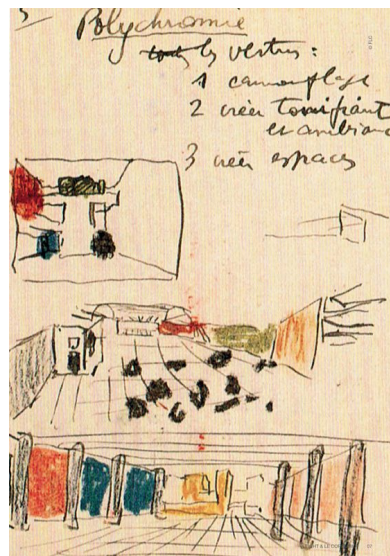 Polychromie
les vertus :
1 camouflage
2 créer tonifiant
et ambianc
3 créer espaces
© FLC